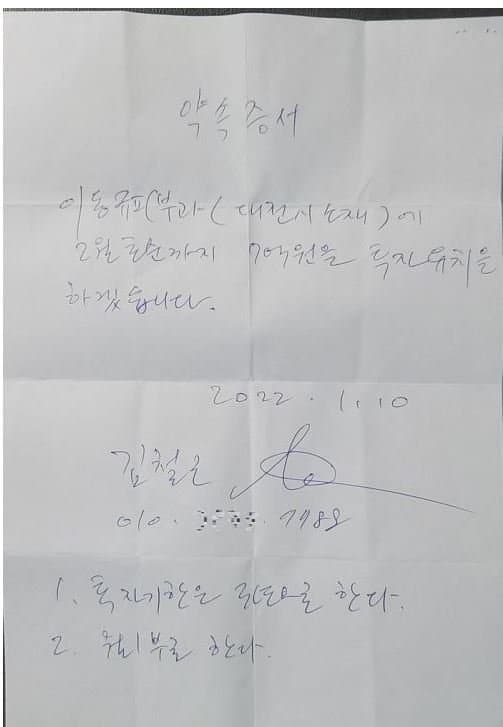 약속증서
이동규피부과(대전시소재)에
2월초순까지 7억원을 투자유치를
하겠습니다.
2022. 1. 10
김철근
010. 7788
1. 투자기한은 로 한다.
2. 부로 한다.